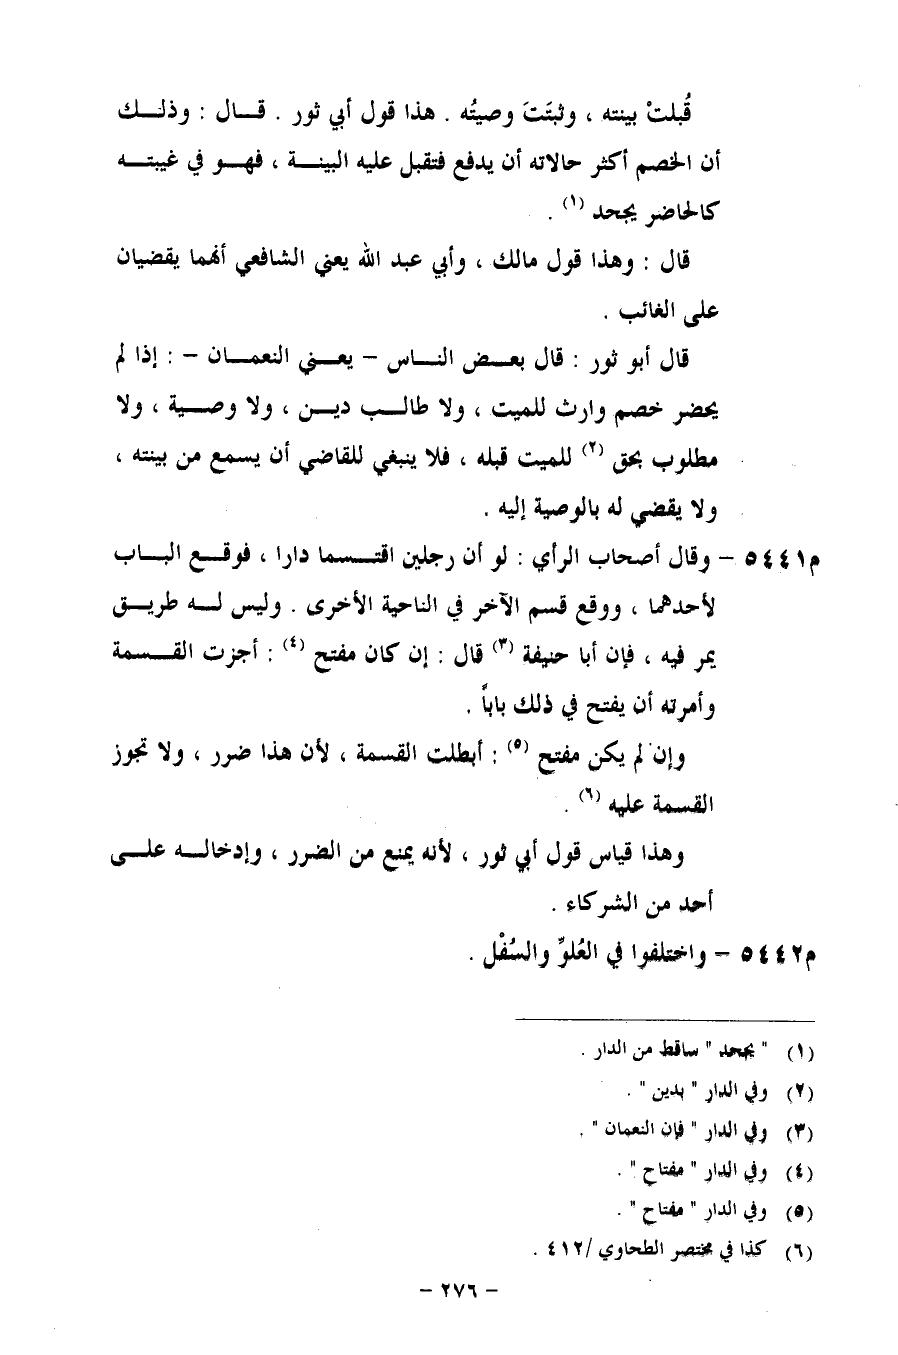 قُبلتْ بينته ، وثبتَتَ وصيتُه . هذا قول أبي ثور . قـــال : وذلــك
أن الخصم أكثر حالاته أن يدفع فتقبل عليه البينـــة ، فهـــو في غيبتـــه
كالحاضر يجحد (١) .
قال : وهذا قول مالك ، وأبي عبد الله يعني الشافعي أنهما يقضيان
على الغائب .
قال أبو ثور : قال بعــض النــاس – يعــني النعمــان – : إذا لم
يحضر خصم وارث للميت ، ولا طالــب ديــن ، ولا وصــية ، ولا
مطلوب بحق (٢) للميت قبله ، فلا ينبغي للقاضي أن يسمع من بينته ،
ولا يقضي له بالوصية إليه .
م٥٤٤١ – وقال أصحاب الرأي : لو أن رجلين اقتـــسما دارا ، فوقــع البــاب
لأحدهما ، ووقع قسم الآخر في الناحية الأخرى . وليس لــه طريــق
يمر فيه ، فإن أبا حنيفة (٣) قال : إن كان مفتح (٤) : أجزت القــسمة
وأمرته أن يفتح في ذلك باباً .
وإن لم يكن مفتح (٥) : أبطلت القسمة ، لأن هذا ضرر ، ولا تجوز
القسمة عليه (٦) .
وهذا قياس قول أبي ثور ، لأنه يمنع من الضرر ، وإدخالــه علــى
أحد من الشركاء .
م٥٤٤٢ – واختلفوا في العُلوِّ والسُفْل .
(١) " يجحد " ساقط من الدار .
(٢) وفي الدار " بدين " .
(٣) وفي الدار " فإن النعمان " .
(٤) وفي الدار " مفتاح " .
(٥) وفي الدار " مفتاح " .
(٦) كذا في مختصر الطحاوي /٤١٢ .
– ٢٧٦ –